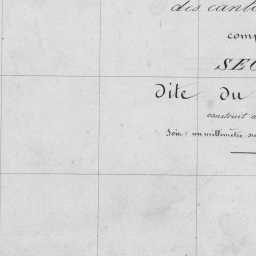 des canto
comp
SEC
Dite Du
construit d
Soin: un millimètre su